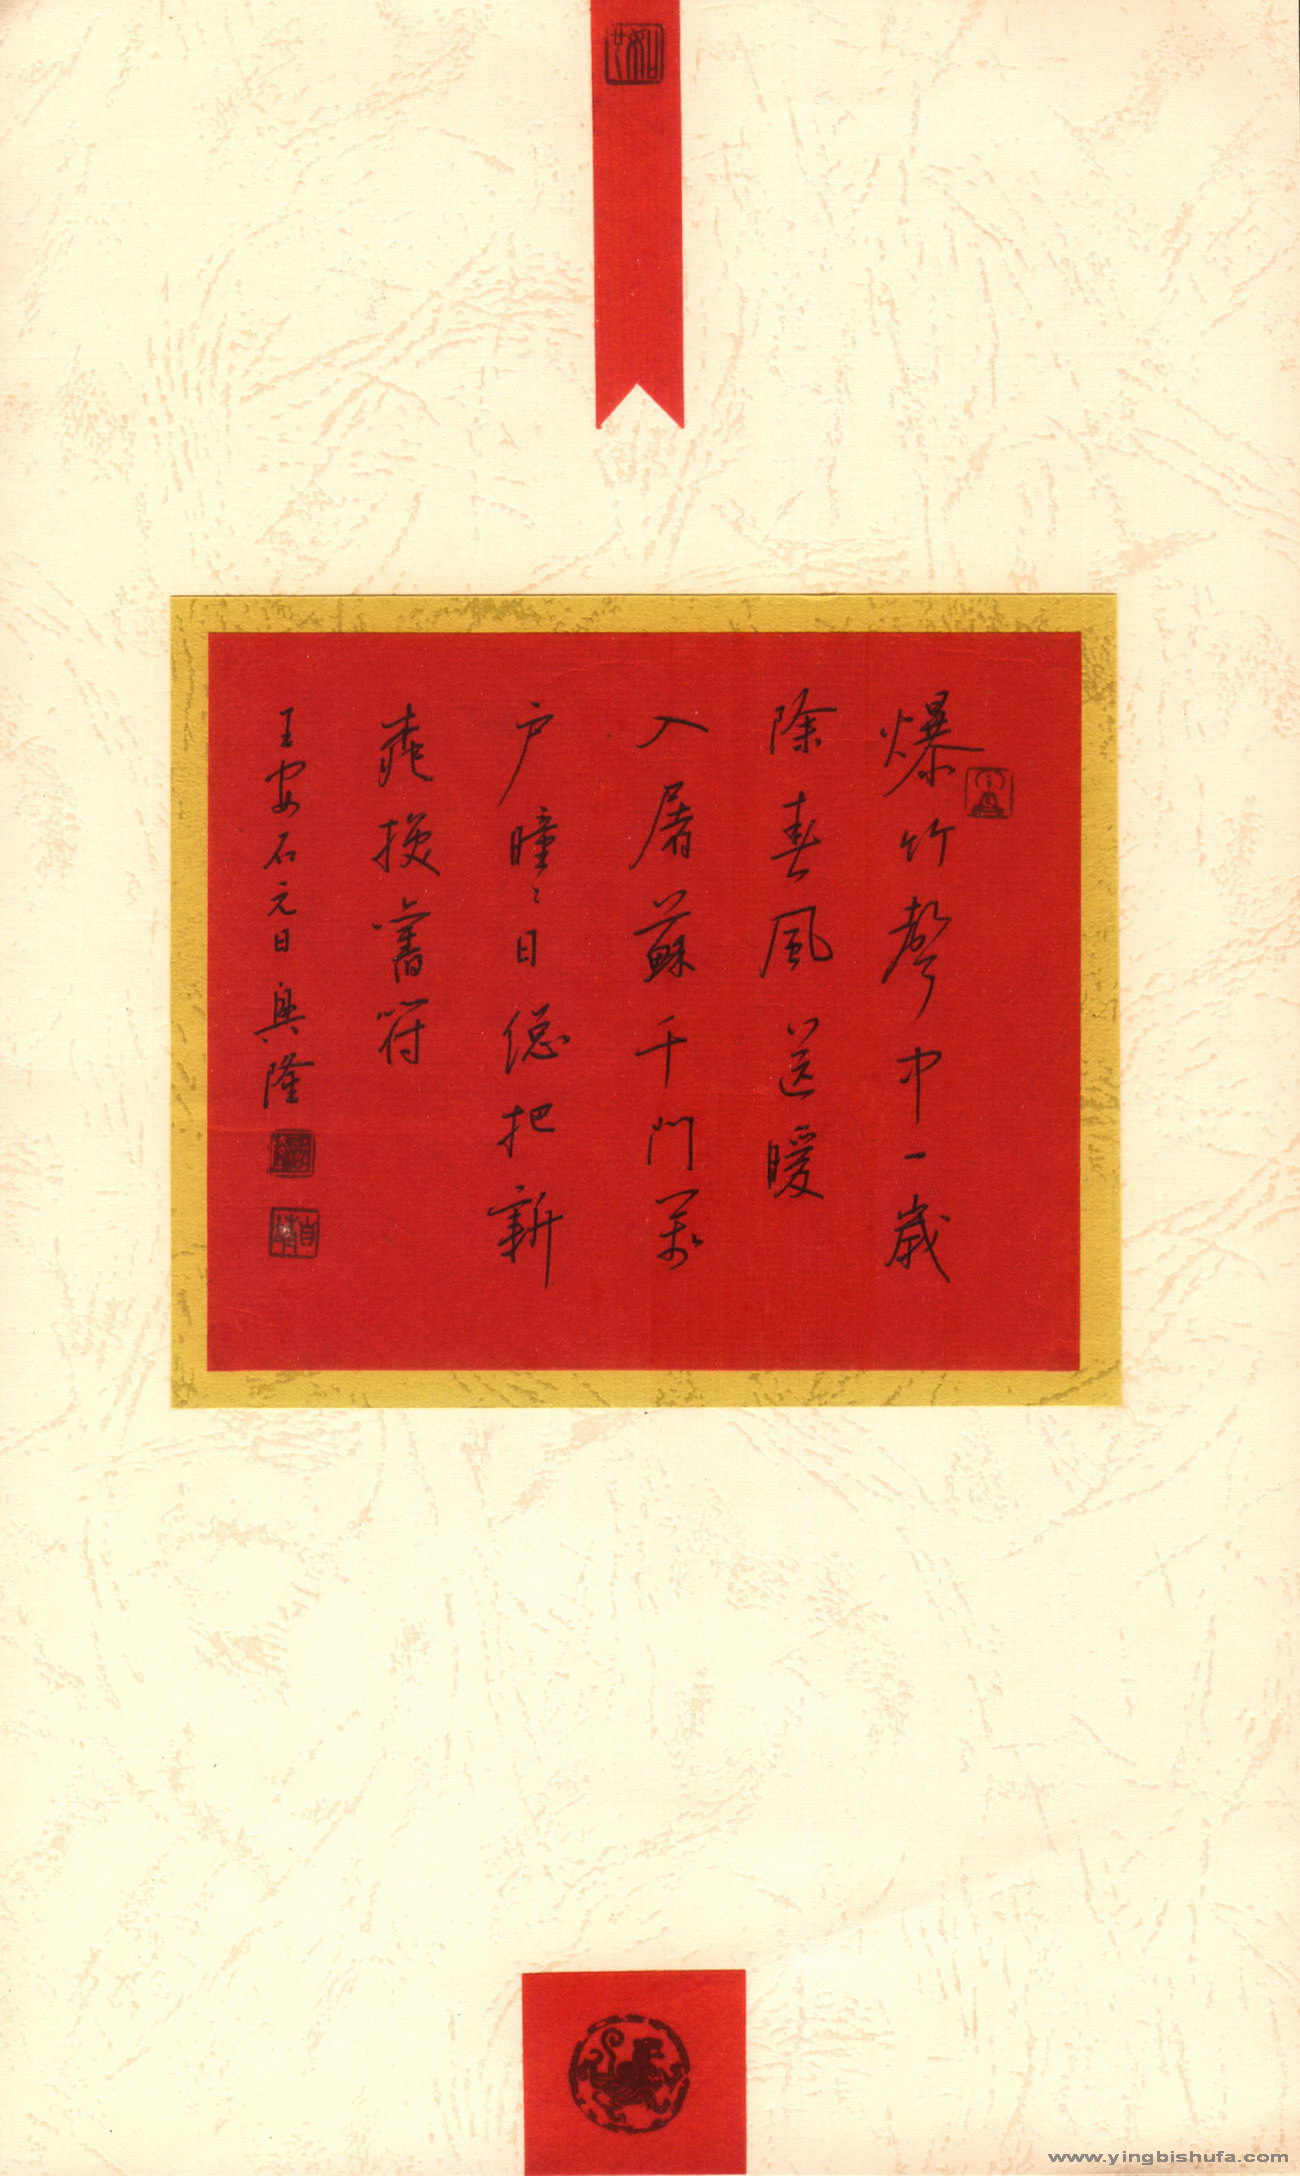 爆竹聲中一歲
除春風送暖
入屠蘇千門萬
户曈〻日總把新
桃換舊符
王安石元日興隆
www.yingbishufa.com